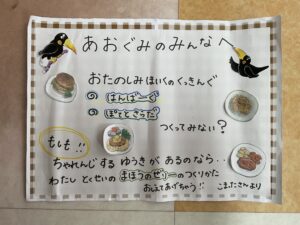 あおぐみのみんなへ
おたのしみほいくのくっきんぐ
の はんばーぐ
の ぽてとさらだ
つくってみない？
もしも!!
ちゃれんじする ゆうきが あるのなら..
わたし とくせいの まほうのゼリーの つくりかた
おしえてあげちゃう!! こまったさんより